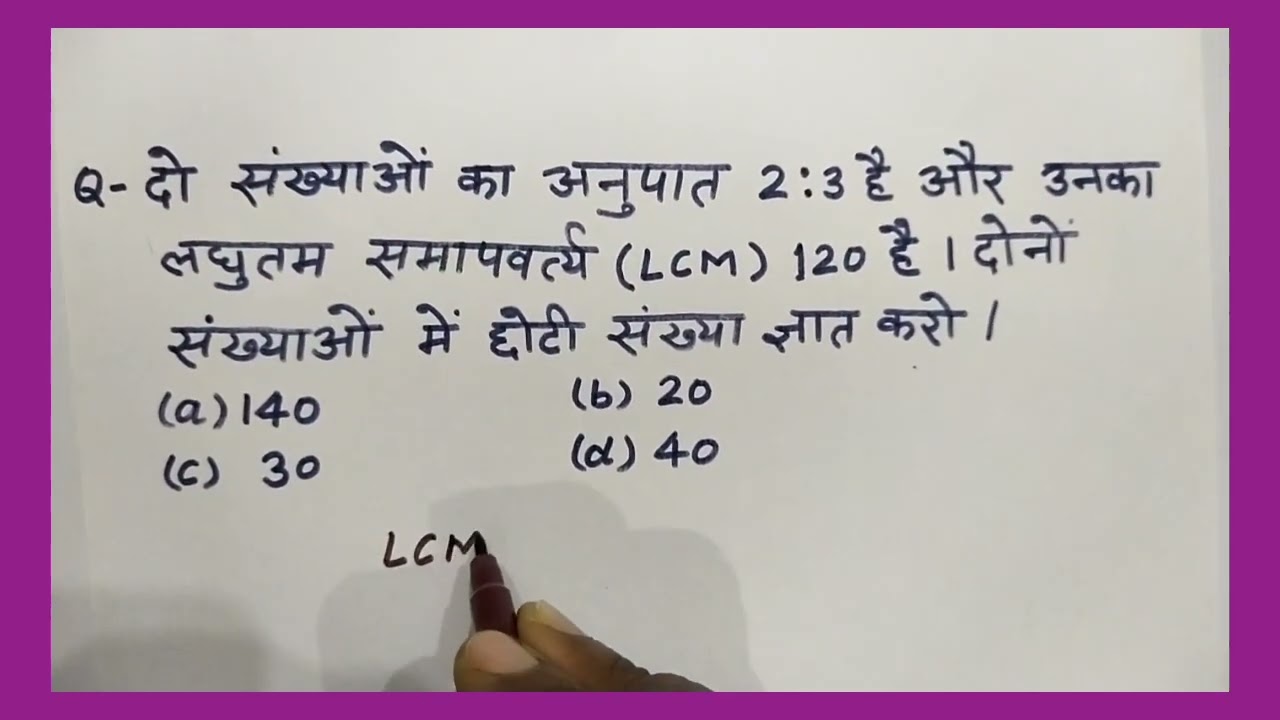 Q- दो संख्याओं का अनुपात 2:3 है और उनका
लघुतम समापवर्त्य (LCM) 120 है । दोनों
संख्याओं में छोटी संख्या ज्ञात करो ।
(a) 140 (b) 20
(c) 30 (d) 40
LCM